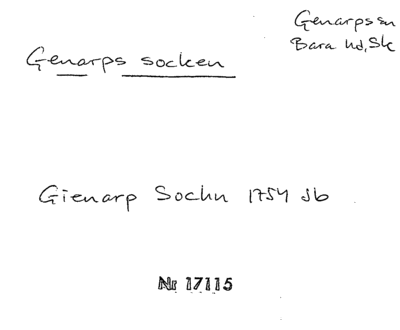 Genarps sn
Bara hd, Sk
Genarps socken
Gienarp Sochn 1754 Jb
Nr 17115